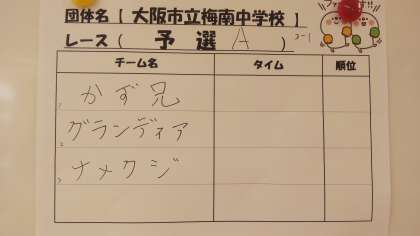 団体名【 大阪市立梅南中学校 】
レース（ 予 選 A ）
チーム名 タイム 順位
かず兄
グランディア
ナメクジ